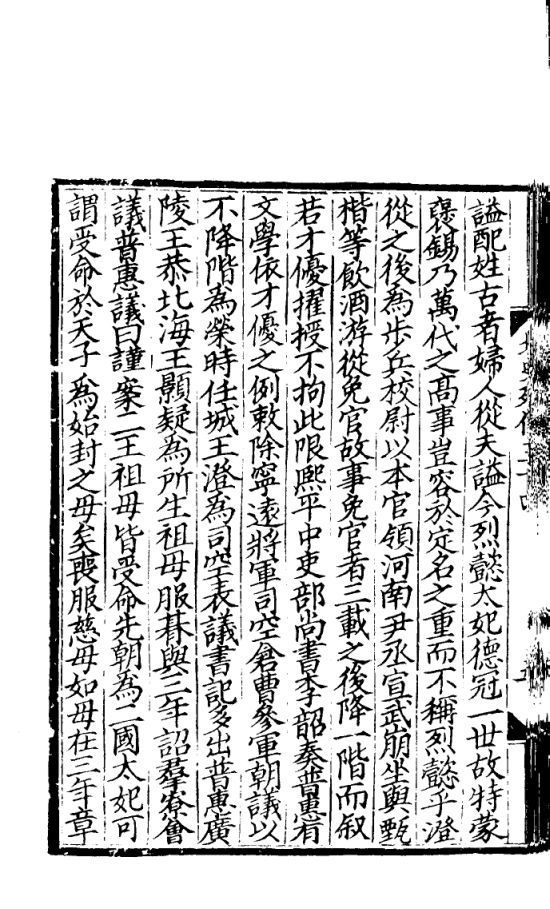 謚配姓古者婦人從夫謚今烈懿太妃德冠一世故特蒙
襃錫乃萬代之髙事豈容於定名之重而不稱烈懿乎澄
從之後為步兵校尉以本官領河南尹丞宣武崩坐與甄
楷等飲酒游從免官故事免官者三載之後降一階而叙
若才優擢授不拘此限熙平中吏部尚書李韶奏普惠有
文學依才優之例敕除寧遠將軍司空倉曹參軍朝議以
不降階為榮時任城王澄為司空表議書記多出普惠廣
陵王恭北海王顥疑為所生祖母服朞與三年詔羣寮會
議普惠議曰謹案二王祖母皆受命先朝為二國太妃可
謂受命於天子為始封之母矣喪服慈母如母在三年章